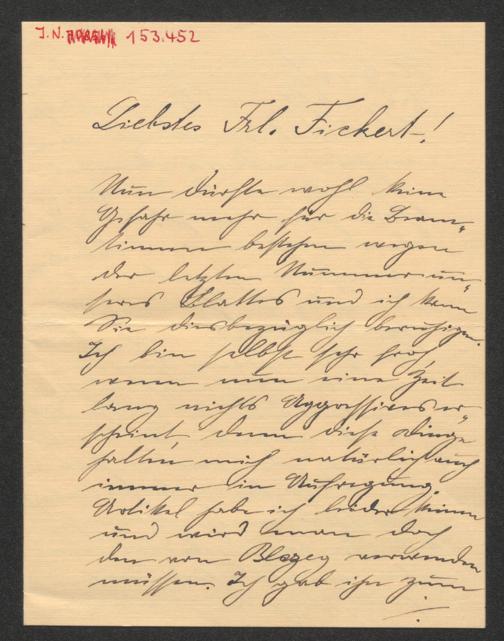 J.N. 153.452
Liebstes Frl. Fickert!
Nun dürfte wohl keine
Gefahr mehr für die Beam-
tinnen bestehen wegen
der letzten Nummer un-
seres Blattes und ich kann
Sie diesbezüglich beruhigen.
Ich bin selbst sehr froh,
wenn nun eine Zeit
lang nichts Aggressives er-
scheint, denn diese Dinge
halten mich natürlich auch
immer in Aufregung.
Artikel habe ich leider keinen
und wird man doch
den von verwenden
müssen. Ich gab ihn zum